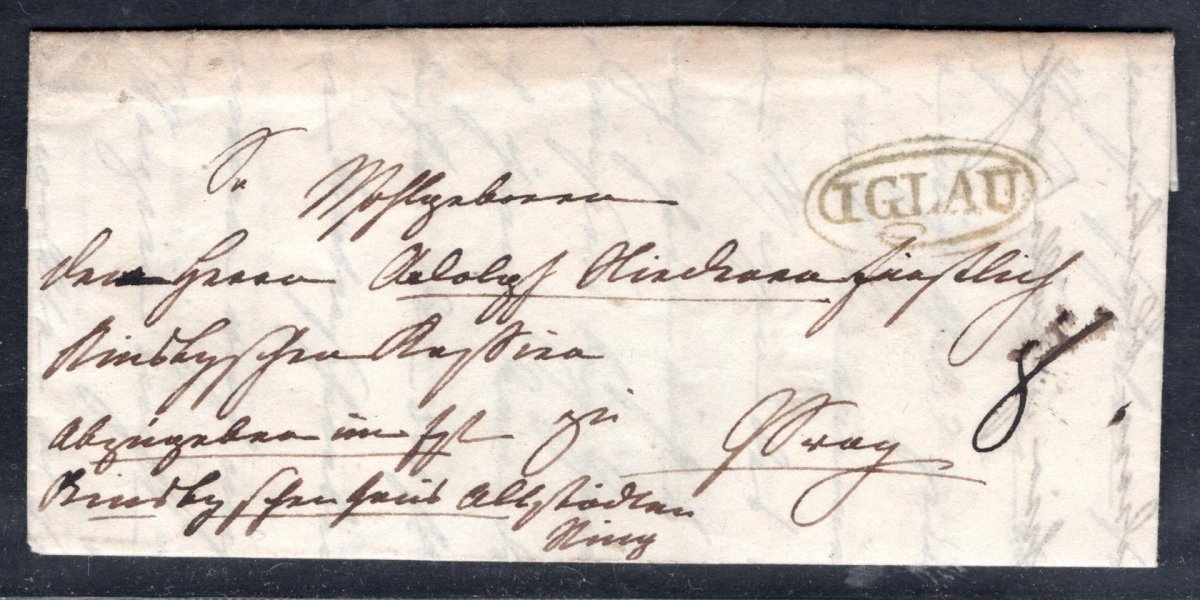 Sr Wohlgeboren
IGLAU
dem Herrn Adolph fürstlich
Kinskyschen Kassier
Abzugeben im fstl zu Prag
Kinskyschen Haus Altstädter
Ring